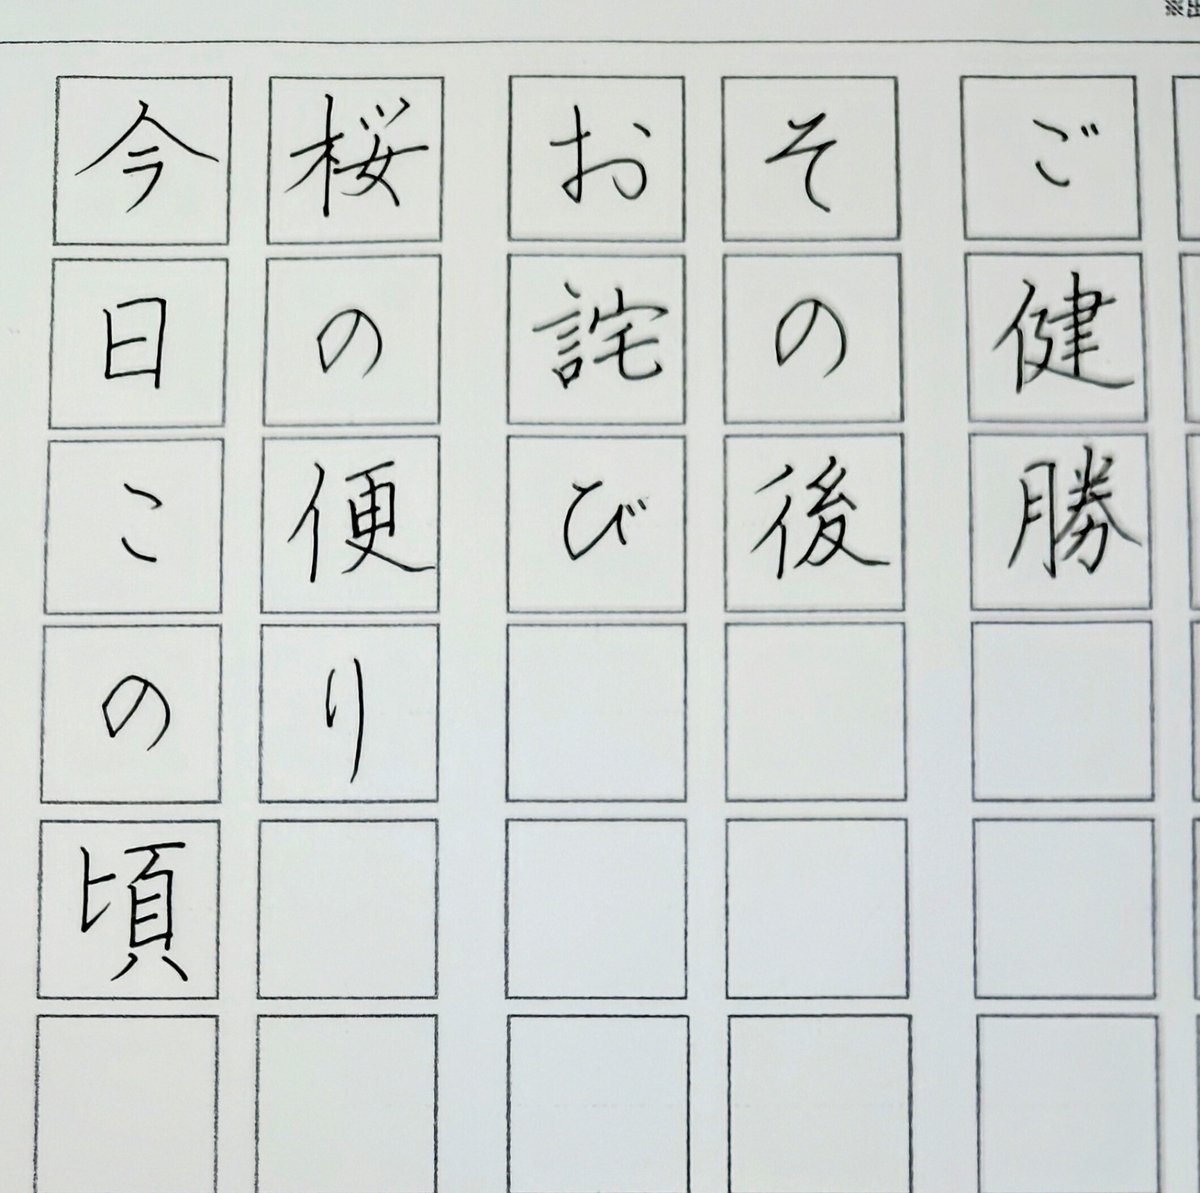 ご健勝
その後
お詫び
桜の便り
今日この頃